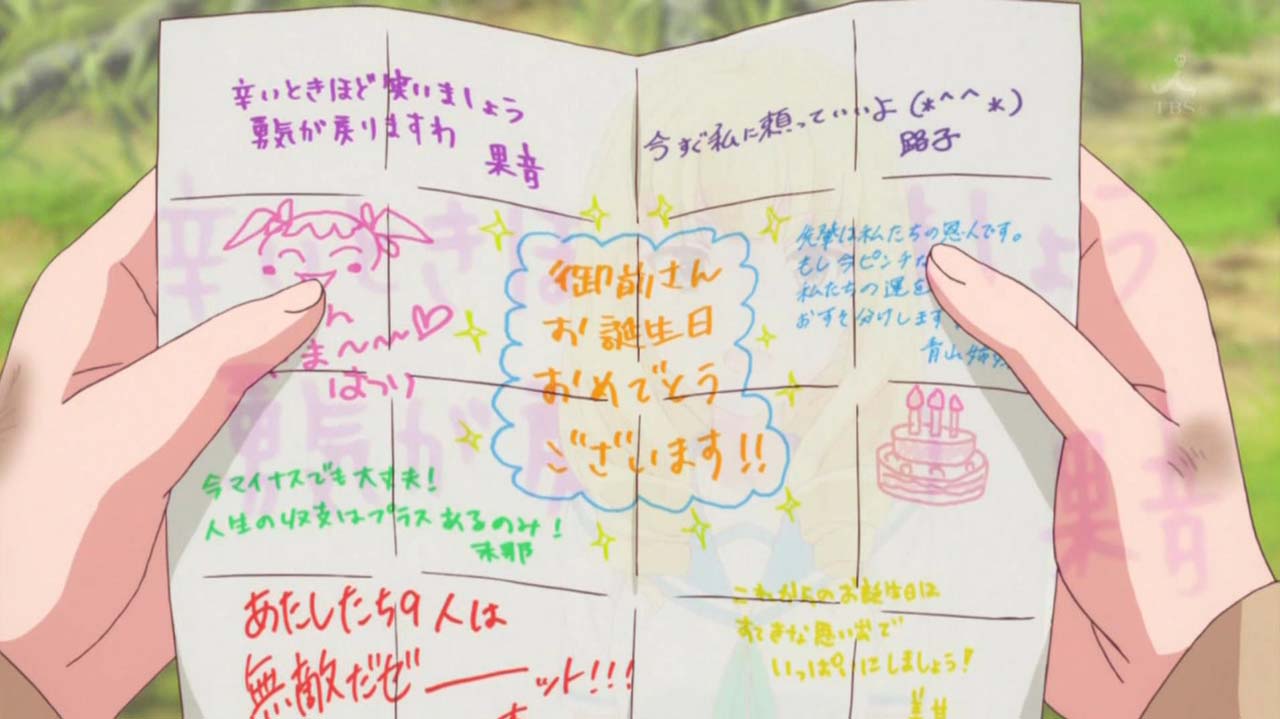 TBS
辛いときほど笑いましょう
勇気が戻りますわ
果音
今すぐ私に頼っていいよ(*^^*)
路子
ん
ま〜〜〜♡
はつり
御前さん
お誕生日
おめでとう
ございます!!
先輩は私たちの恩人です。
もし今ピンチな
私たちの運を
おすそ分けします
青山
今マイナスでも大丈夫!
人生の収支はプラスあるのみ!
朱那
あたしたち9人は
無敵だぜ――ット!!!
これからのお誕生日は
すてきな思い出で
いっぱいにしましょう!
辛いときほ しょう
勇気が戻
果音